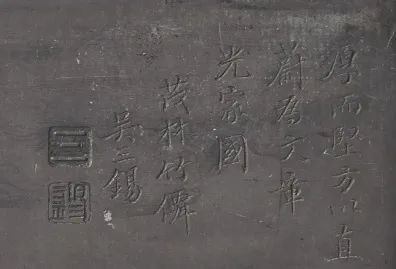 厚而堅方以直
蔚為文
光家國
茂林竹
吳三錫
三
錫